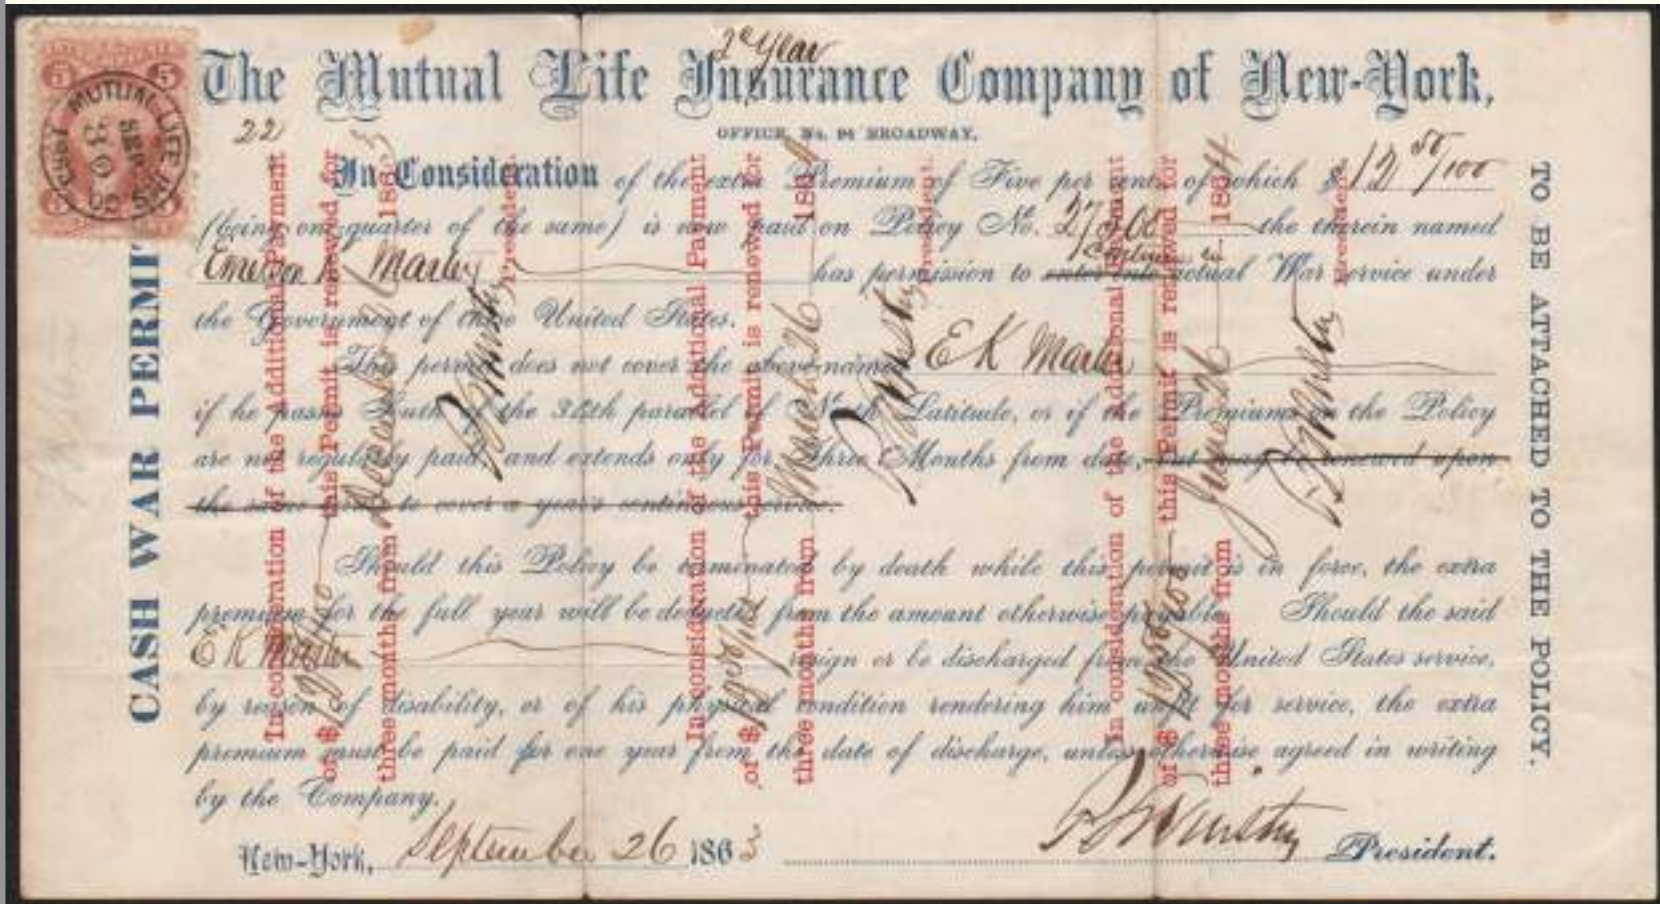 2e Year
The Mutual Life Insurance Company of New-York,
OFFICE, No. 94 BROADWAY.
22
5 5
MUTUAL LIFE INS. CO.
SEP
In Consideration of the extra Premium of Five per cent. of which $12 50/100
(being one quarter of the same) is now paid on Policy No. the therein named
Emerson K Marley has permission to enter into actual War service under
Continue in
the Government of these United States.
This permit does not cover the above-named E K
if he passes South of the 34th parallel of North Latitude, or if the Premiums on the Policy
are not regularly paid, and extends only for Three Months from date, but may be renewed upon
the same terms to cover a year's continuous service.
Should this Policy be terminated by death while this permit is in force, the extra
premium for the full year will be deducted from the amount otherwise payable. Should the said
E K resign or be discharged from the United States service,
by reason of disability, or of his physical condition rendering him unfit for service, the extra
premium must be paid for one year from the date of discharge, unless otherwise agreed in writing
by the Company.
New-York, September 26 1863 President.
CASH WAR PERMIT
TO BE ATTACHED TO THE POLICY.
In consideration of the Additional Payment
of $12 50/100 this Permit is renewed for
three months from December 26 1863
President.
In consideration of the Additional Payment
of $12 50/100 this Permit is renewed for
three months from March 26 1864
President.
In consideration of the Additional Payment
of $12 50/100 this Permit is renewed for
three months from June 26 1864
President.